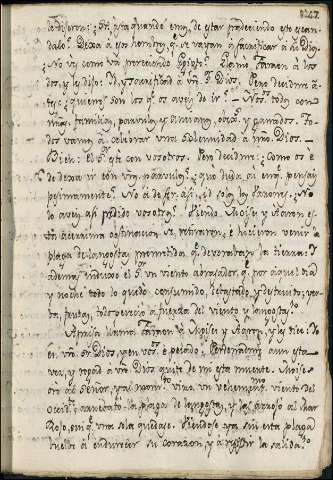 le dixeron: ¿St. hsta quando emos de estar padeciendo este escan-
dalo? Dexa à esos hombres, qe. se vayan à sacrificar à su Dios.
¿No ves como va pereciendo Egipto? Llamo Faraon à los
dos, y les dixo: Id, y sacrificad à vro. S. Dios. Pero decidme an-
tes: ¿quienes son los qe. os aveis de ir? - Nosotros todos con
nras. familias, parvulos, y ancianos, ovejas, y ganados. To-
dos vamos à celebrar una solemnidad à nro. Dios. -
Bien: El Sr. este con vosotros. Pero decidme: ¿Como os e
de dexar ir con vros. parvulos? ¿que duda ai em pensais
pesimamente? No à de ser asi: id solos los varones. ¿No
lo aveis asi pedido vosotros? Viendo Moises y Aaron es-
ta acerrima obstinacion se retiraron, e hicieron venir la
plaga de langostas, permitidos qe. devoraban la tierra: Y
ademas induxo el Sr. un viento abrasador, qe. por aquel dia
y noche todo lo quedo consumido, y destruido; yer-
ba, frutas, todo perecio à fuerza del viento y langosta.
Aprisa llama Faraon à Moises y Aaron, y les dice: Con-
tra vro. S. Dios, y con vosos. e pecado: Perdonadme aun esta
vez, y rogad à vro Dios quite de mi esta muerte. Moises
oró al Señor, y al momto. vino un vehementmo. viento del
Occidte. arrebatò la plaga de langosta, y las arrojo al Mar
Rojo, sin qe. una sola quedase. Viendose ya sin esta plaga
vuelve à endurecer su corazon, y à negar la salida.